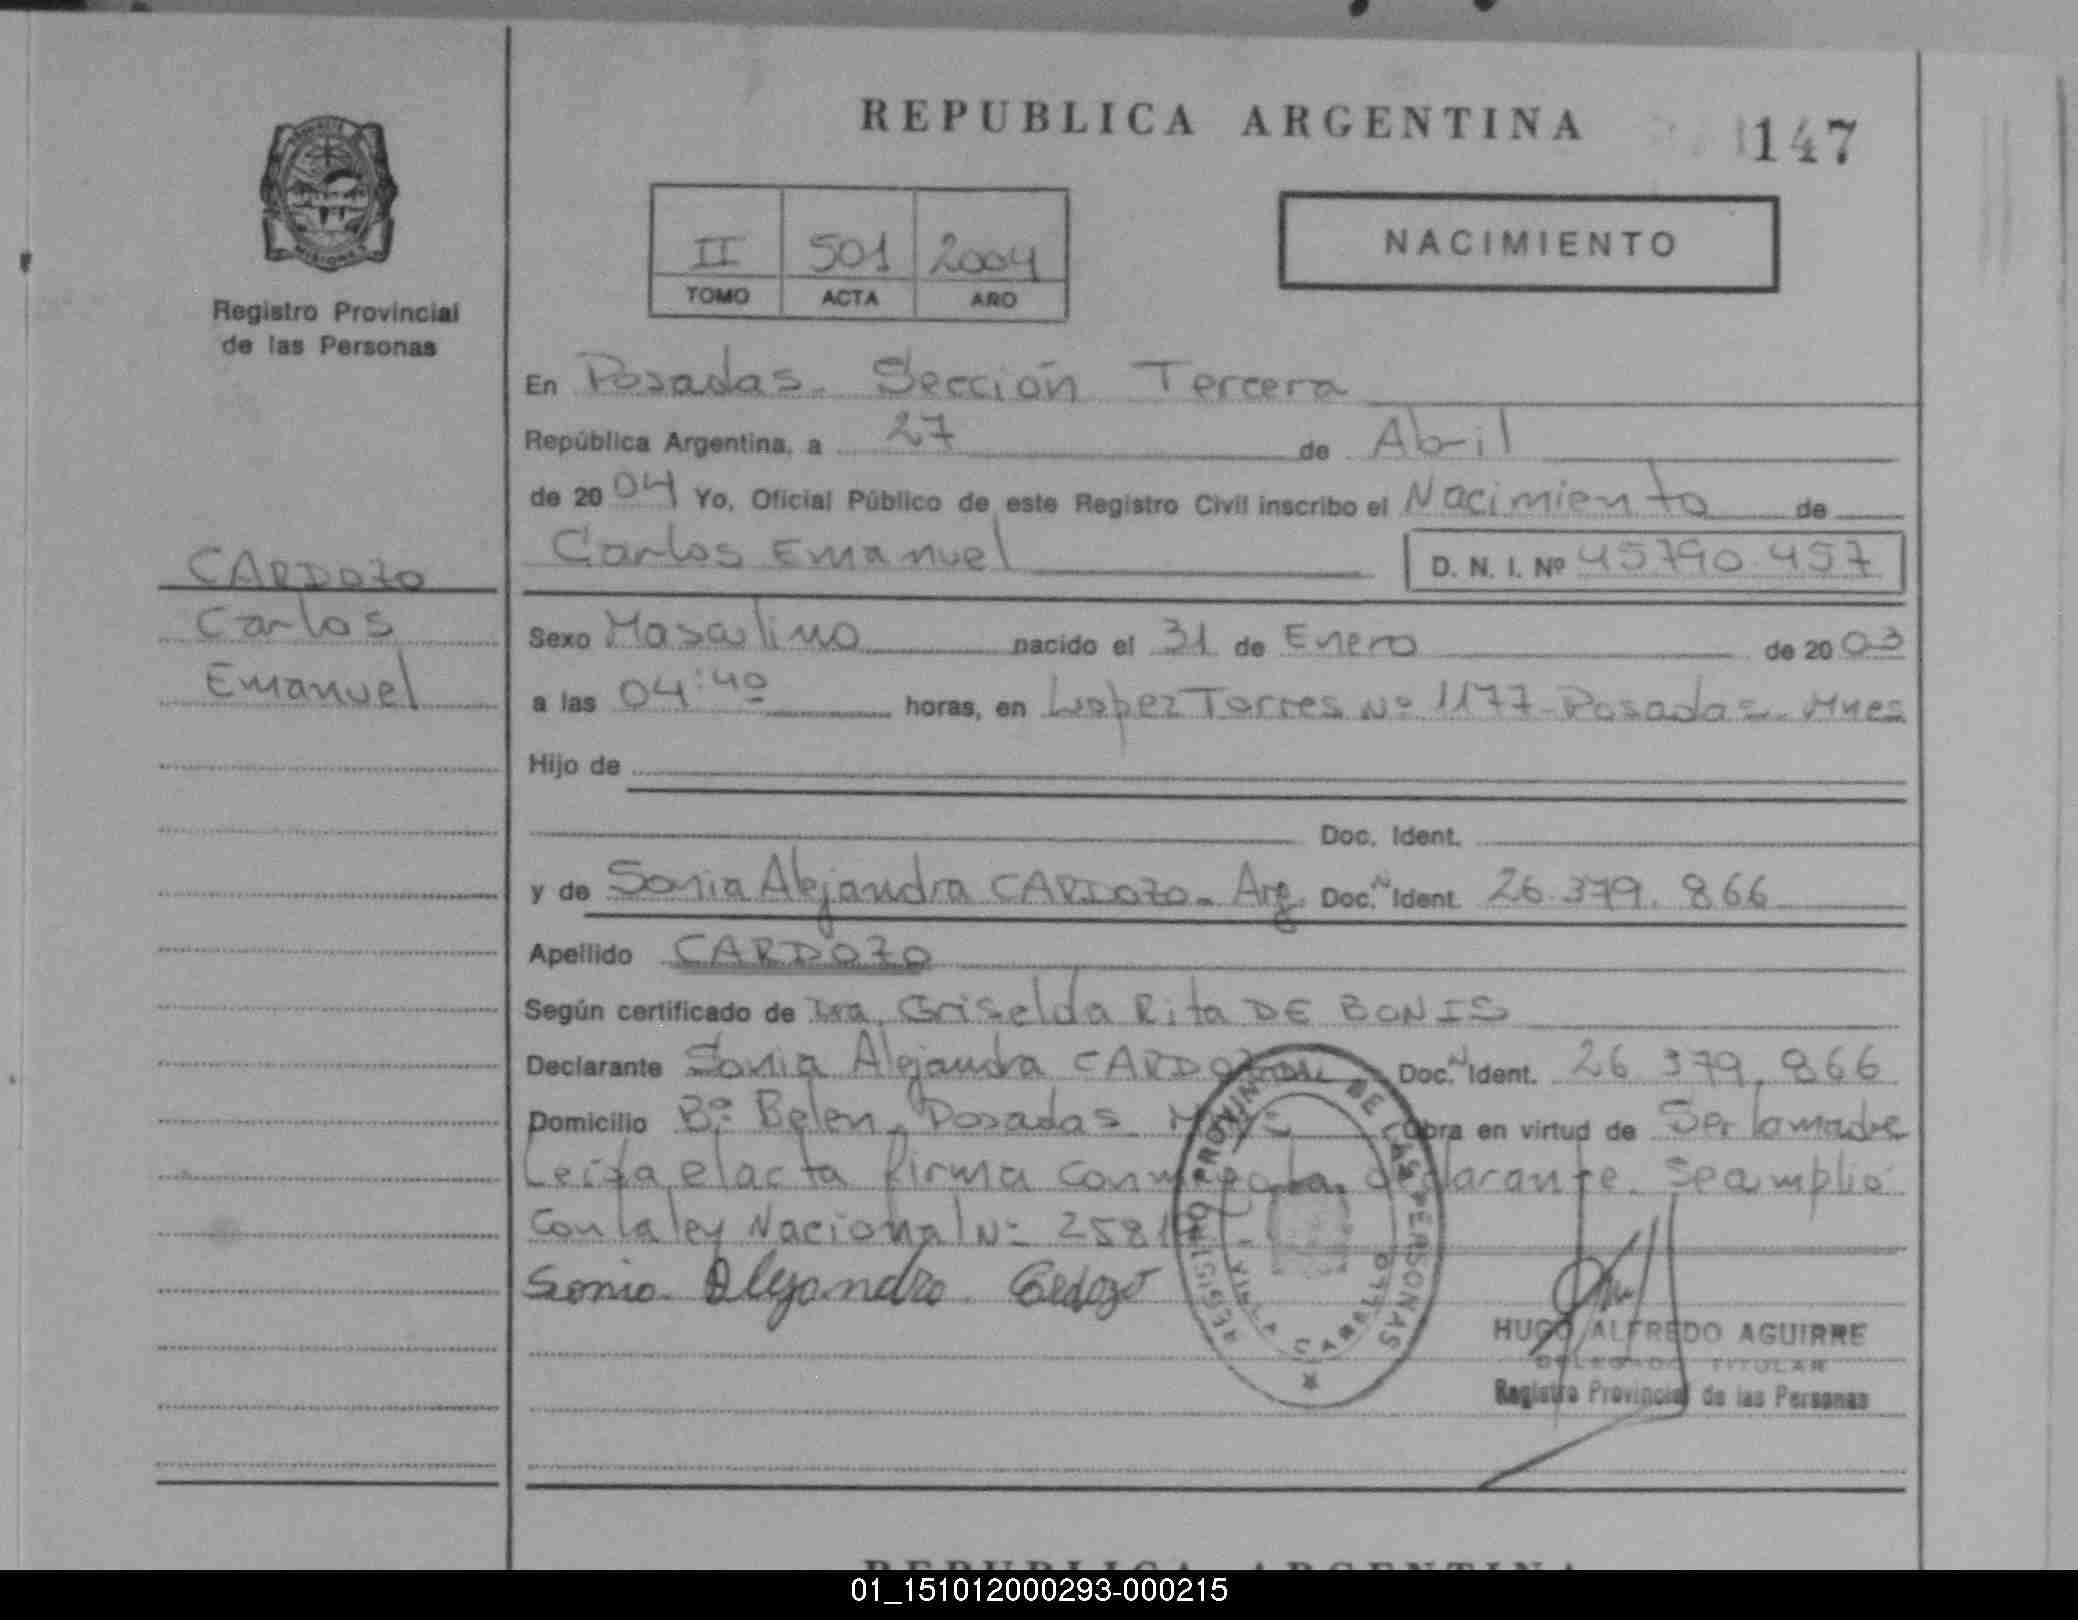 REPUBLICA ARGENTINA
147
II 501 2004
TOMO ACTA AÑO
NACIMIENTO
Registro Provincial
de las Personas
CARDOZO
Carlos
Emanuel
En Posadas. Sección Tercera
República Argentina, a 27 de Abril
de 2004 Yo, Oficial Público de este Registro Civil inscribo el Nacimiento de
Carlos Emanuel D. N. I. Nº 45790.457
Sexo Masculino nacido el 31 de Enero de 2003
a las 04:40 horas, en Lopez Torres Nº 1177-Posadas-Mnes
Hijo de
Doc. Ident.
y de Sonia Alejandra CARDOZO. Arg. Doc. N Ident. 26.379.866
Apellido CARDOZO
Según certificado de Dra. Griselda Rita DE BONIS
Declarante Sonia Alejandra CARDOZO Doc. N Ident. 26.379.866
Domicilio Bº Belen. Posadas Obra en virtud de Ser la madre
Leida el acta firma conmigo la declarante. Se amplió
con la ley Nacional Nº
Sonia Alejandra Cardozo
REGISTRO PROVINCIAL DE LAS PERSONAS
VILLA CABELLO
HUGO ALFREDO AGUIRRE
DELEGADO TITULAR
Registro Provincial de las Personas
REPUBLICA ARGENTINA
01_151012000293-000215